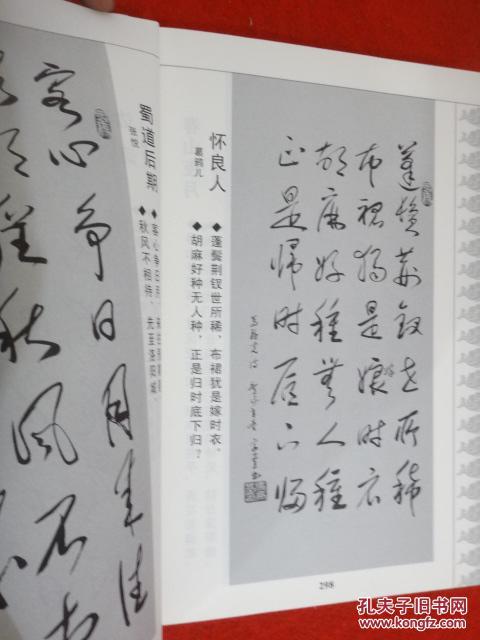 蓬鬢荆釵世所稀
布裙猶是嫁时衣
胡麻好種無人種
正是歸时底不歸
怀良人
葛鸦儿
◆蓬鬓荆钗世所稀，布裙犹是嫁时衣。
◆胡麻好种无人种，正是归时底下归？
298
蜀道后期
张悦
◆客心争日月，来往预期程。
◆秋风不相待，先至洛阳城。
客心争日月来往
程秋风不相
孔夫子旧书网